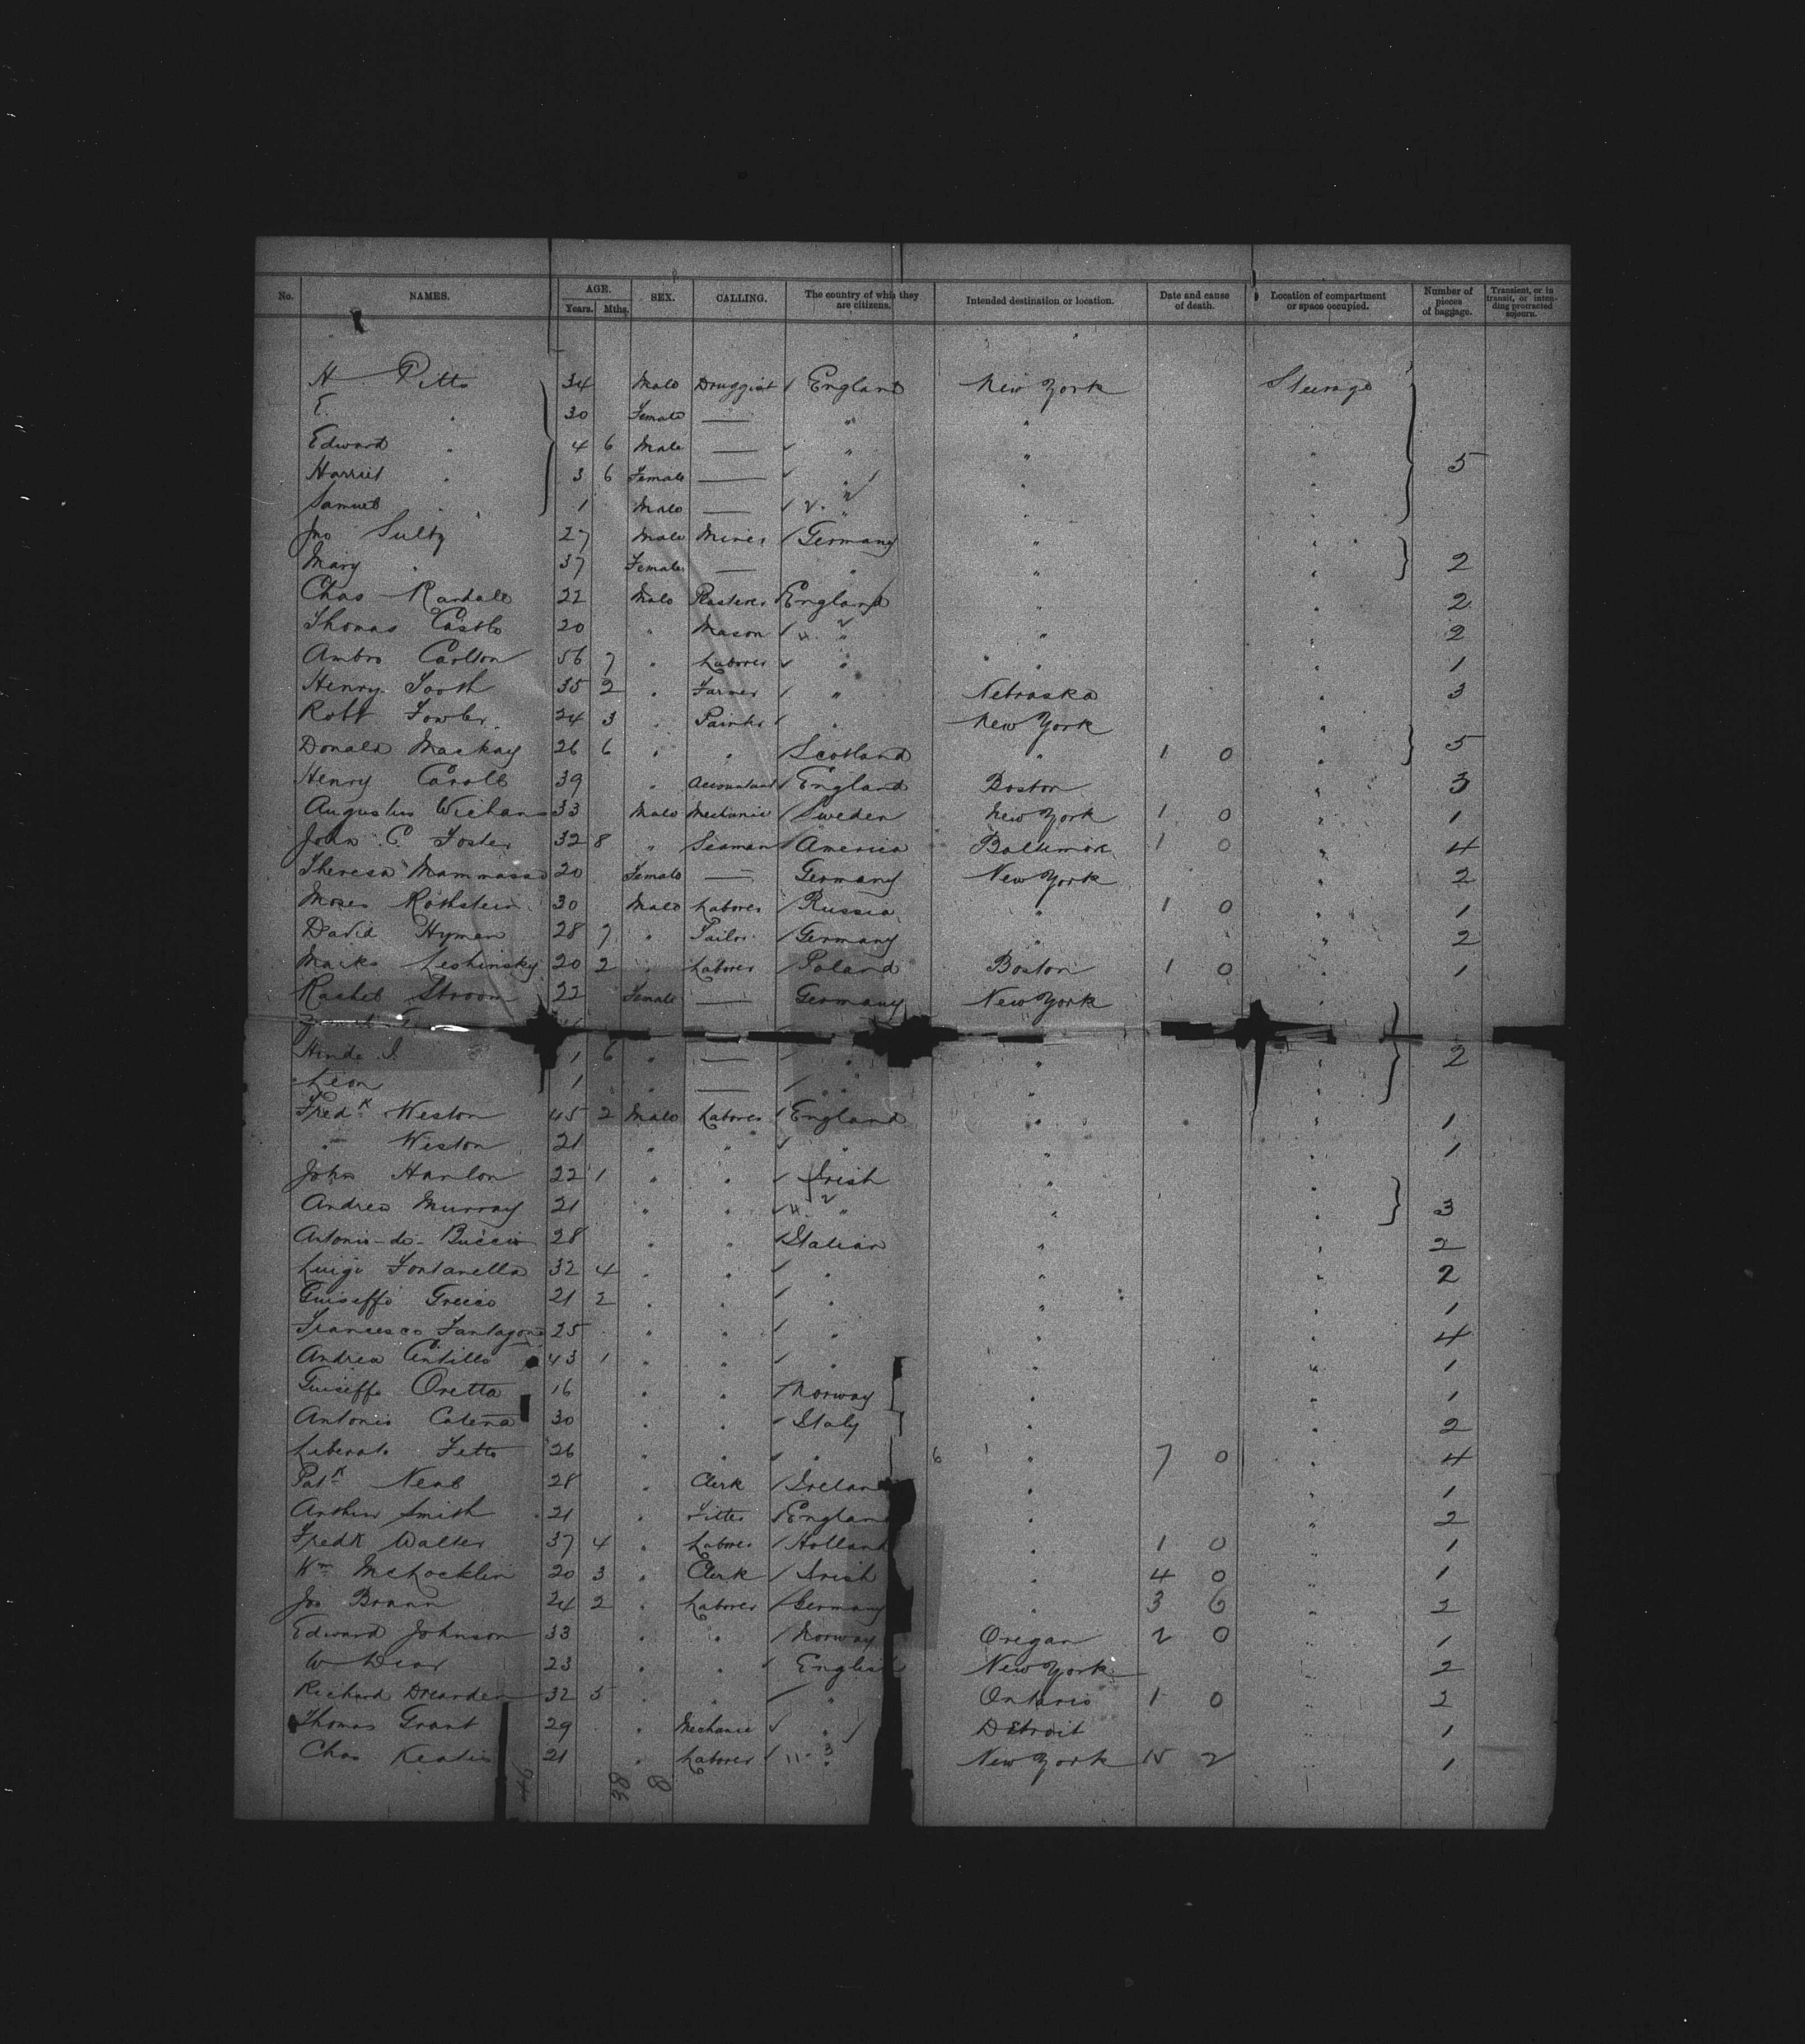 No. NAMES. AGE. Years. Mths. SEX. CALLING. The country of whi they are citizens. Intended destination or location. Date and cause of death. Location of compartment or space occupied. Number of pieces of baggage. Transient, or in transit, or inten- ding protracted sojourn.
H Pitts 34 Male Druggist / England New York Steerage
E. " 30 Female — " "
Edward " 4 6 Male — " " " 5
Harriet " 3 6 Female — " " "
Samuel " 1 Male — " " "
Jno Sultz 27 Male Miner / Germany " "
Mary " 37 Female — " " " 2
Chas Randall 22 Male Plasterer England " " 2
Thomas Castle 20 " Mason / " " " 2
Ambro Carlton 56 7 " Laborer " " " 1
Henry Tooth 35 2 " Farmer / " Nebraska " 3
Robt Fowler 24 3 " Painter / " New York "
Donald Mackay 26 6 " " / Scotland " 1 0 " 5
Henry Caroll 39 " Accountant / England Boston " 3
Augustus 33 Male Mechanic / Sweden New York 1 0 " 1
John C. Foster 32 8 " Seaman / America Baltimore 1 0 " 4
Theresa 20 Female — Germany New York " 2
Moses Rothstein 30 Male Laborer / Russia " 1 0 " 1
David Hyman 28 7 " Tailor / Germany " " 2
Marks Leshinsky 20 2 " Laborer / Poland Boston 1 0 " 1
Rachel Stroom 22 Female — Germany New York "
Hinde 1 6 " — " " " 2
Leon 1 " — / " " "
Fredk Weston 45 2 Male Laborer / England " " 1
" Weston 21 " " / " " " 1
John Hanlon 22 1 " " / Irish " "
Andrew Murray 21 " " / " " " 3
Antonio-de-Buccio 28 " " / Italian " " 2
Luigi Fontanella 32 4 " " / " " " 2
Guiseffo Greico 21 2 " " / " " " 1
Francesco 25 " " / " " " 4
Andrea 43 1 " " / " " " 1
Guiseffo Oretta 16 " " / Norway " " 1
Antonio Catena 30 " " / Italy " " 2
Liberato Fetto 26 " " / " 6 " 7 0 " 4
Patk Neal 28 " Clerk / Irelan " " 1
Arthur Smith 21 " Fitter / England " " 2
Fredk Walter 37 4 " Laborer / Holland " 1 0 " 1
Wm McLocklin 20 3 " Clerk / Irish " 4 0 " 1
Jos Brann 24 2 " Laborer / Germany " 3 6 " 2
Edward Johnson 33 " " / Norway Oregan 2 0 " 1
W Dear 23 " " / English New York " 2
Richard 32 5 " " / " Ontario 1 0 " 2
Thomas Grant 29 " Mechanic / " Detroit " 1
Chas 21 " Laborer / 11. 3 New York 15 2 " 1
38 8